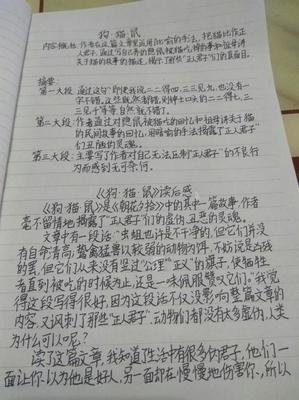 狗·猫·鼠
内容概括:作者在这篇文章里运用比喻的手法,把猫比作正
人君子,通过写自己养的隐鼠被猫吃掉的事和祖母讲
关于猫的故事的描述,揭示了那些“正人君子”们的真面目。
摘要:
第一大段:通过这句“即使我说二二得四,三三见九,也没有一
字不错。这些既然都错,则绅士口头的二二得七,三
三见千等等,自然就不错了。
第二大段:作者通过对隐鼠被猫吃的回忆和祖母讲关于猫
的民间故事的回忆,用暗喻的手法揭露了“正人君子”
们丑陋的灵魂。
第三大段:主要写了作者对自己无法压制“正人君子”的不良行
为而感到无可奈何。
《狗·猫·鼠》读后感
《狗·猫·鼠》是《朝花夕拾》中的其中一篇故事,作者
毫不留情地揭露了“正人君子”们的虚伪、丑恶的灵魂。
文章中有一段话“虫蛆也许是不干净的,但它们并没
有自命清高;鸷禽猛兽以较弱的动物为饵,不妨说是凶残
的罢,但它们从来没有竖过“公理”“正义”的旗子,使牺牲
者直到被吃的时候为止,还是一味佩服赞叹它们。”我觉
得这段写得很好,因为这段话不仅没影响整篇文章的
内容,又讽刺了那些“正人君子”。动物们都没有太多虚伪,人类
为什么可以呢?
读了这篇文章,我知道了生活中有很多伪君子,他们一
面让你以为他是好人,另一面却在慢慢地伤害你。所以